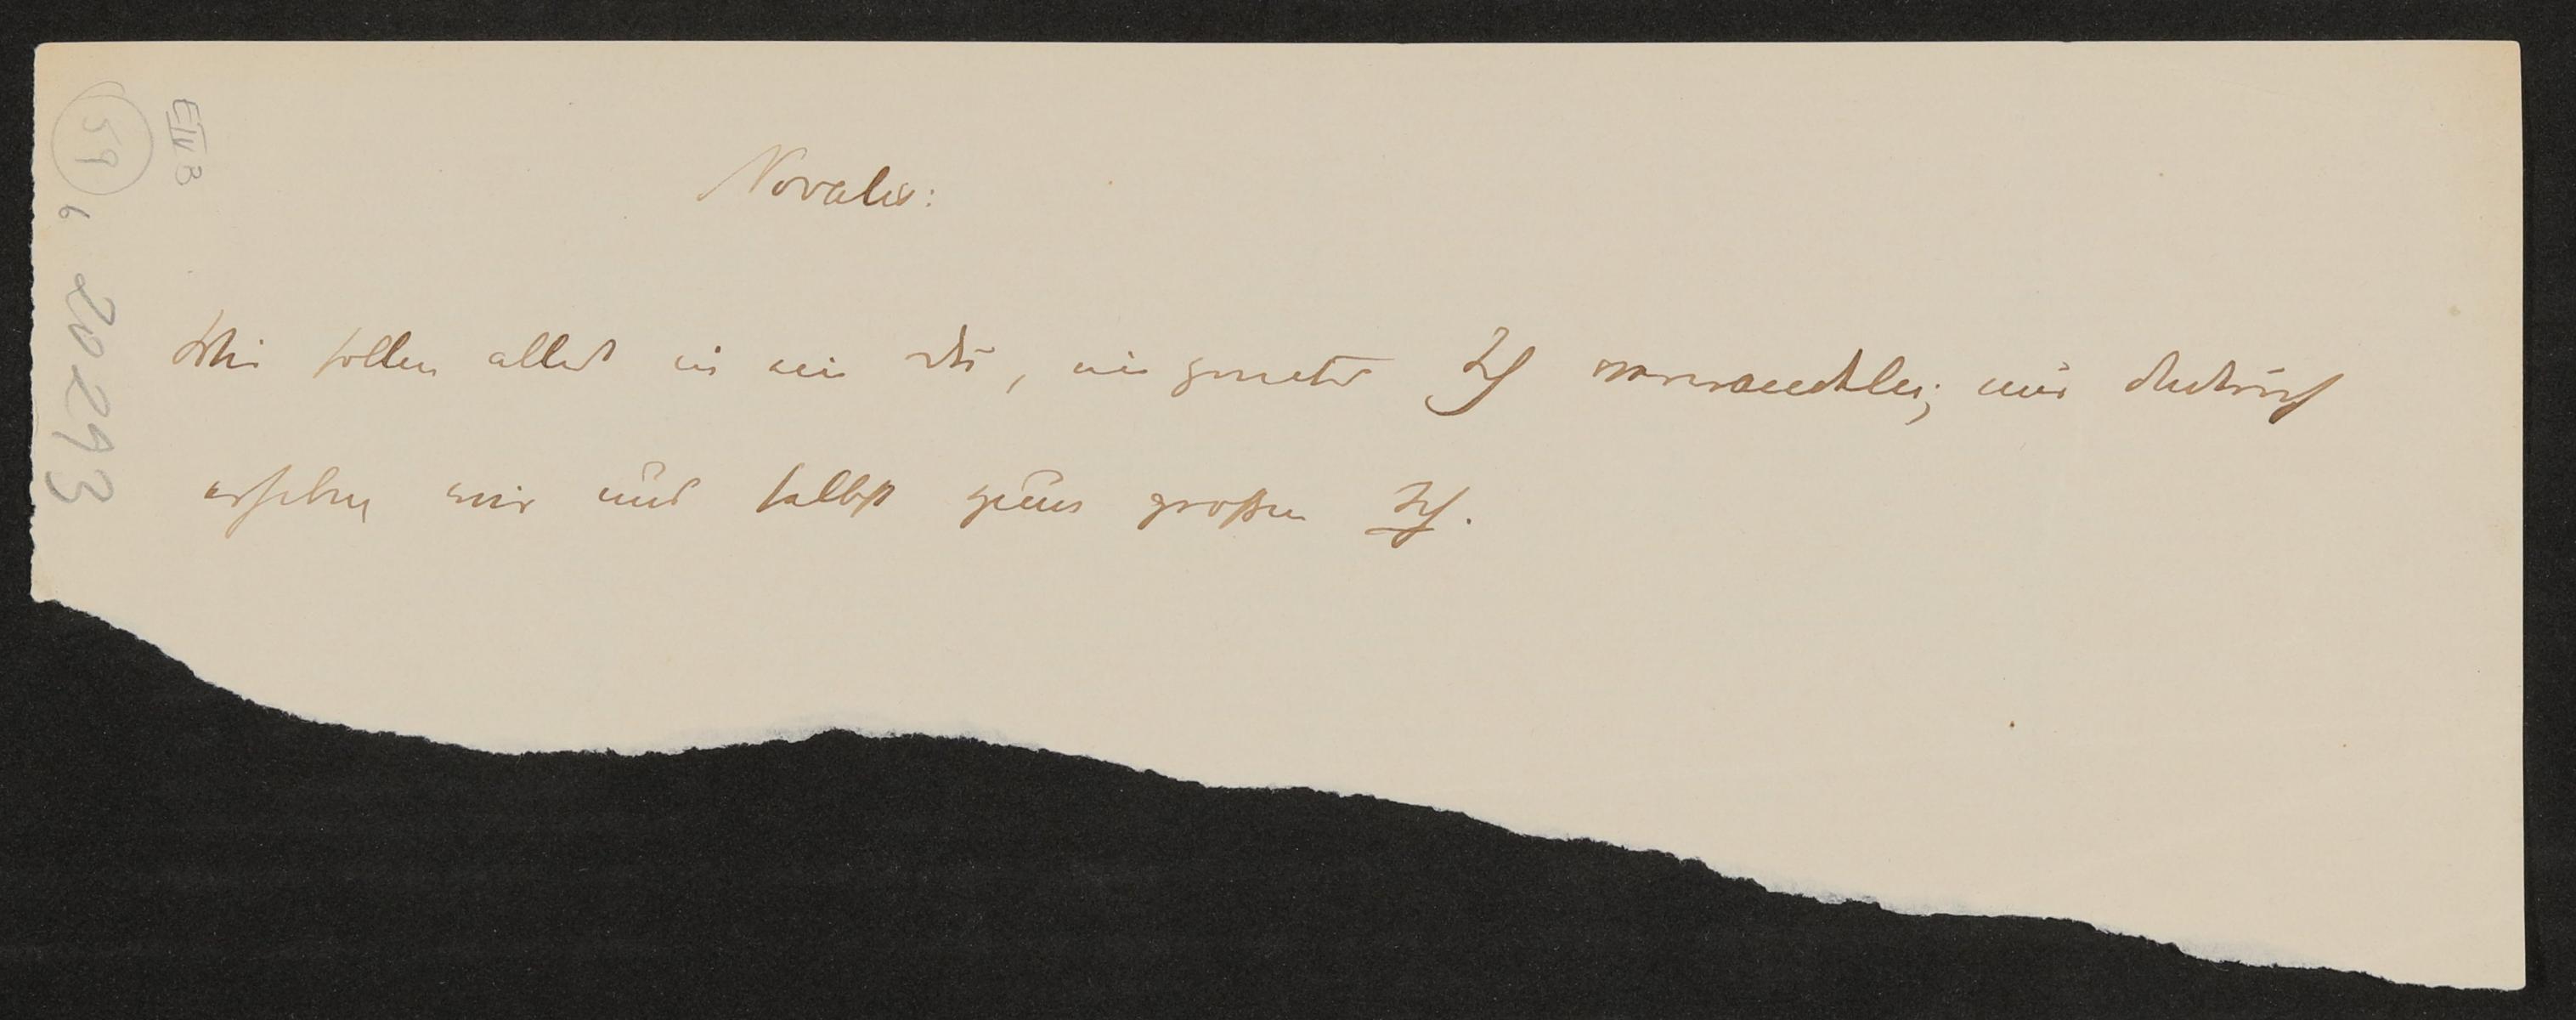 Novalis:
Wir sollen alles in ein Du, ein zweites Ich verwandeln; nur dadurch
erheben wir uns selbst zum großen Ich.
E IV B
59
6
20293